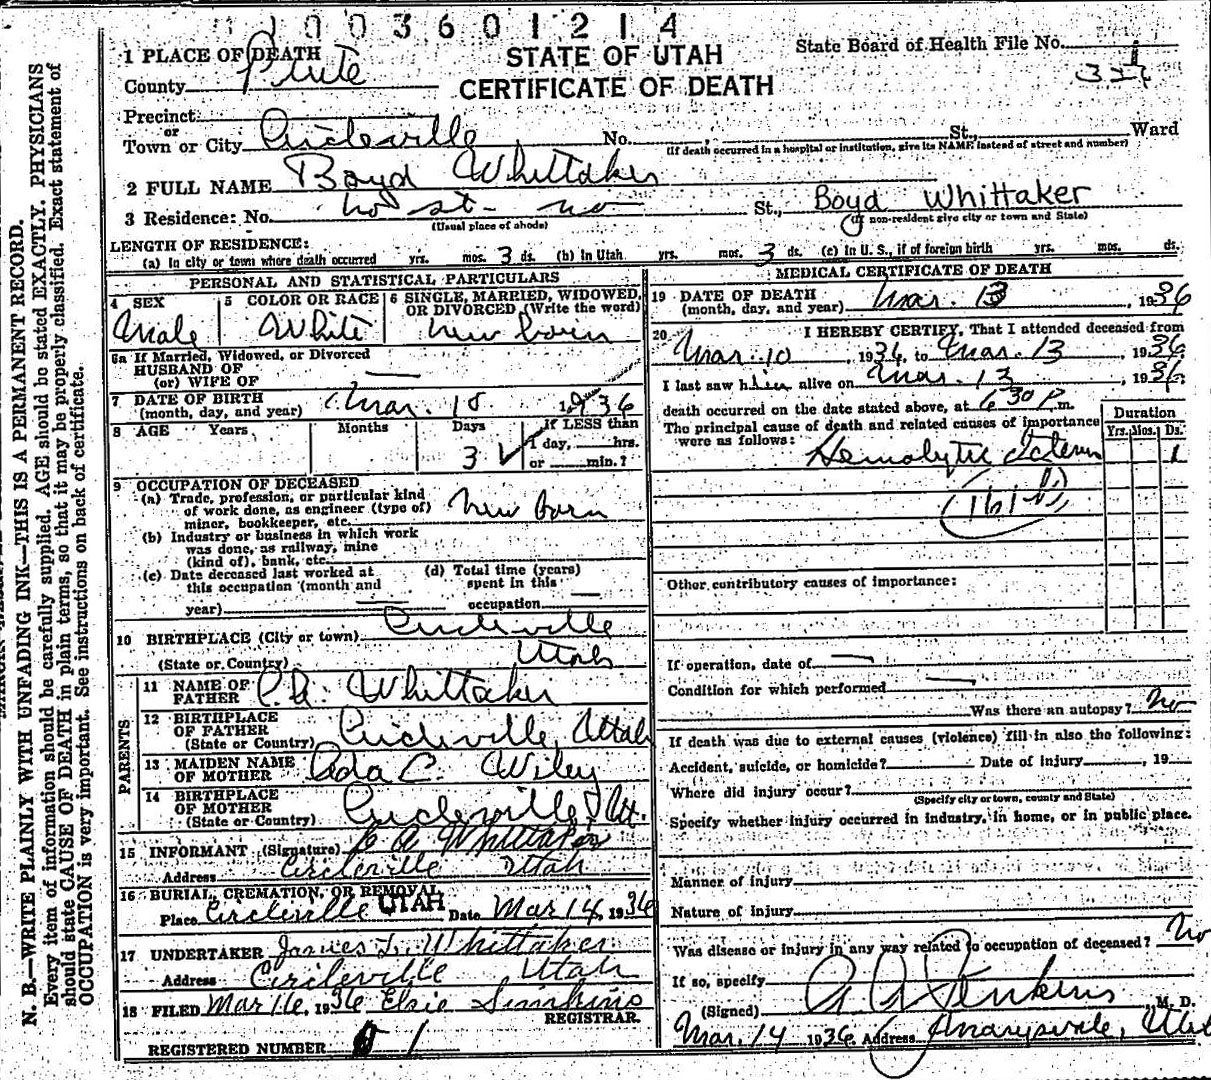 1003601214
STATE OF UTAH
CERTIFICATE OF DEATH
State Board of Health File No.
1 PLACE OF DEATH
County Piute
Precinct
or
Town or City Circleville No. St., Ward
(If death occurred in a hospital or institution, give its NAME instead of street and number)
2 FULL NAME Boyd Whittaker
3 Residence: No. no st. no St., Boyd Whittaker
(Usual place of abode) (If non-resident give city or town and State)
LENGTH OF RESIDENCE:
(a) In city or town where death occurred yrs. mos. 3 ds. (b) In Utah yrs. mos. 3 ds. (c) In U. S., if of foreign birth yrs. mos. ds.
PERSONAL AND STATISTICAL PARTICULARS
4 SEX Male
5 COLOR OR RACE White
6 SINGLE, MARRIED, WIDOWED, OR DIVORCED (Write the word) new born
6a If Married, Widowed, or Divorced
HUSBAND OF
(or) WIFE OF
7 DATE OF BIRTH
(month, day, and year) Mar. 10 1936
8 AGE Years Months Days If LESS than
3 1 day, hrs.
or min.?
9 OCCUPATION OF DECEASED
(a) Trade, profession, or particular kind
of work done, as engineer (type of) new born
miner, bookkeeper, etc.
(b) Industry or business in which work
was done, as railway, mine
(kind of), bank, etc.
(c) Date deceased last worked at (d) Total time (years)
this occupation (month and spent in this
year) occupation
10 BIRTHPLACE (City or town) Circleville
(State or Country) Utah
PARENTS
11 NAME OF
FATHER C. A. Whittaker
12 BIRTHPLACE
OF FATHER
(State or Country) Circleville, Utah
13 MAIDEN NAME
OF MOTHER Ada C. Wiley
14 BIRTHPLACE
OF MOTHER
(State or Country) Circleville, Ut.
15 INFORMANT (Signature) C A Whittaker
Address Circleville Utah
16 BURIAL, CREMATION, OR REMOVAL
Place Circleville UTAH Date Mar 14, 1936
17 UNDERTAKER James L. Whittaker
Address Circleville Utah
18 FILED Mar 16, 1936 Elsie Simkins
REGISTRAR.
REGISTERED NUMBER 1
MEDICAL CERTIFICATE OF DEATH
19 DATE OF DEATH
(month, day, and year) Mar. 13, 1936
20 I HEREBY CERTIFY, That I attended deceased from
Mar. 10, 1936, to Mar. 13, 1936.
I last saw him alive on Mar. 13, 1936;
death occurred on the date stated above, at 6 30 P.m.
The principal cause of death and related causes of importance
were as follows:
Duration
Yrs. Mos. Ds.
Hemolytic Icterus 1
(161b)
Other contributory causes of importance:
If operation, date of
Condition for which performed
Was there an autopsy? No
If death was due to external causes (violence) fill in also the following:
Accident, suicide, or homicide? Date of injury , 19
Where did injury occur?
(Specify city or town, county and State)
Specify whether injury occurred in industry, in home, or in public place.
Manner of injury
Nature of injury
Was disease or injury in any way related to occupation of deceased? No
If so, specify
(Signed) Jenkins, M. D.
Mar. 14 1936 Address Marysvale, Utah
N. B.—WRITE PLAINLY WITH UNFADING INK—THIS IS A PERMANENT RECORD.
Every item of information should be carefully supplied. AGE should be stated EXACTLY. PHYSICIANS
should state CAUSE OF DEATH in plain terms, so that it may be properly classified. Exact statement of
OCCUPATION is very important. See instructions on back of certificate.